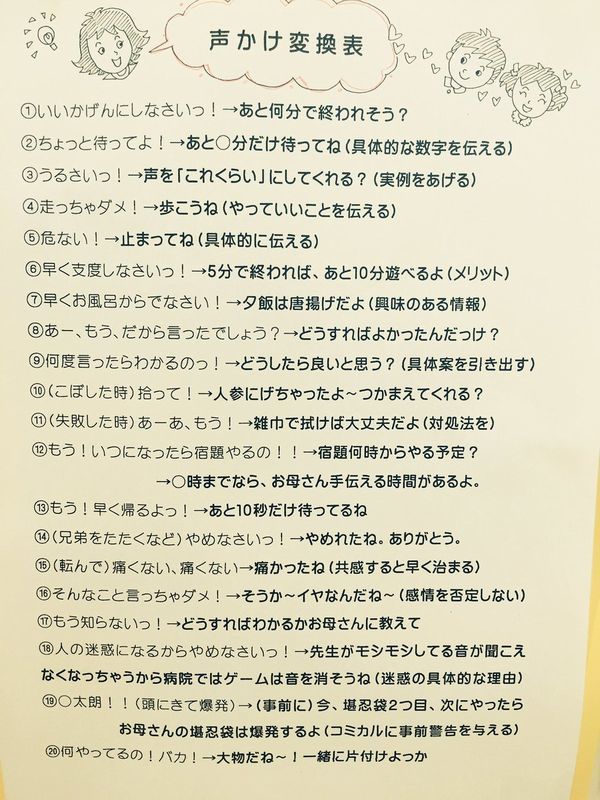 声かけ変換表
①いいかげんにしなさいっ！→あと何分で終われそう？
②ちょっと待ってよ！→あと○分だけ待ってね(具体的な数字を伝える)
③うるさいっ！→声を「これくらい」にしてくれる？(実例をあげる)
④走っちゃダメ！→歩こうね(やっていいことを伝える)
⑤危ない！→止まってね(具体的に伝える)
⑥早く支度しなさいっ！→5分で終われば、あと10分遊べるよ(メリット)
⑦早くお風呂からでなさい！→夕飯は唐揚げだよ(興味のある情報)
⑧あー、もう、だから言ったでしょう？→どうすればよかったんだっけ？
⑨何度言ったらわかるのっ！→どうしたら良いと思う？(具体案を引き出す)
⑩(こぼした時)拾って！→人参にげちゃったよ～つかまえてくれる？
⑪(失敗した時)あーあ、もう！→雑巾で拭けば大丈夫だよ(対処法を)
⑫もう！いつになったら宿題やるの！！→宿題何時からやる予定？
→○時までなら、お母さん手伝える時間があるよ。
⑬もう！早く帰るよっ！→あと10秒だけ待ってるね
⑭(兄弟をたたくなど)やめなさいっ！→やめれたね。ありがとう。
⑮(転んで)痛くない、痛くない→痛かったね(共感すると早く治まる)
⑯そんなこと言っちゃダメ！→そうか～イヤなんだね～(感情を否定しない)
⑰もう知らないっ！→どうすればわかるかお母さんに教えて
⑱人の迷惑になるからやめなさいっ！→先生がモシモシしてる音が聞こえ
なくなっちゃうから病院ではゲームは音を消そうね(迷惑の具体的な理由)
⑲○太朗！！(頭にきて爆発)→(事前に)今、堪忍袋2つ目、次にやったら
お母さんの堪忍袋は爆発するよ(コミカルに事前警告を与える)
⑳何やってるの！バカ！→大物だね～！一緒に片付けよっか